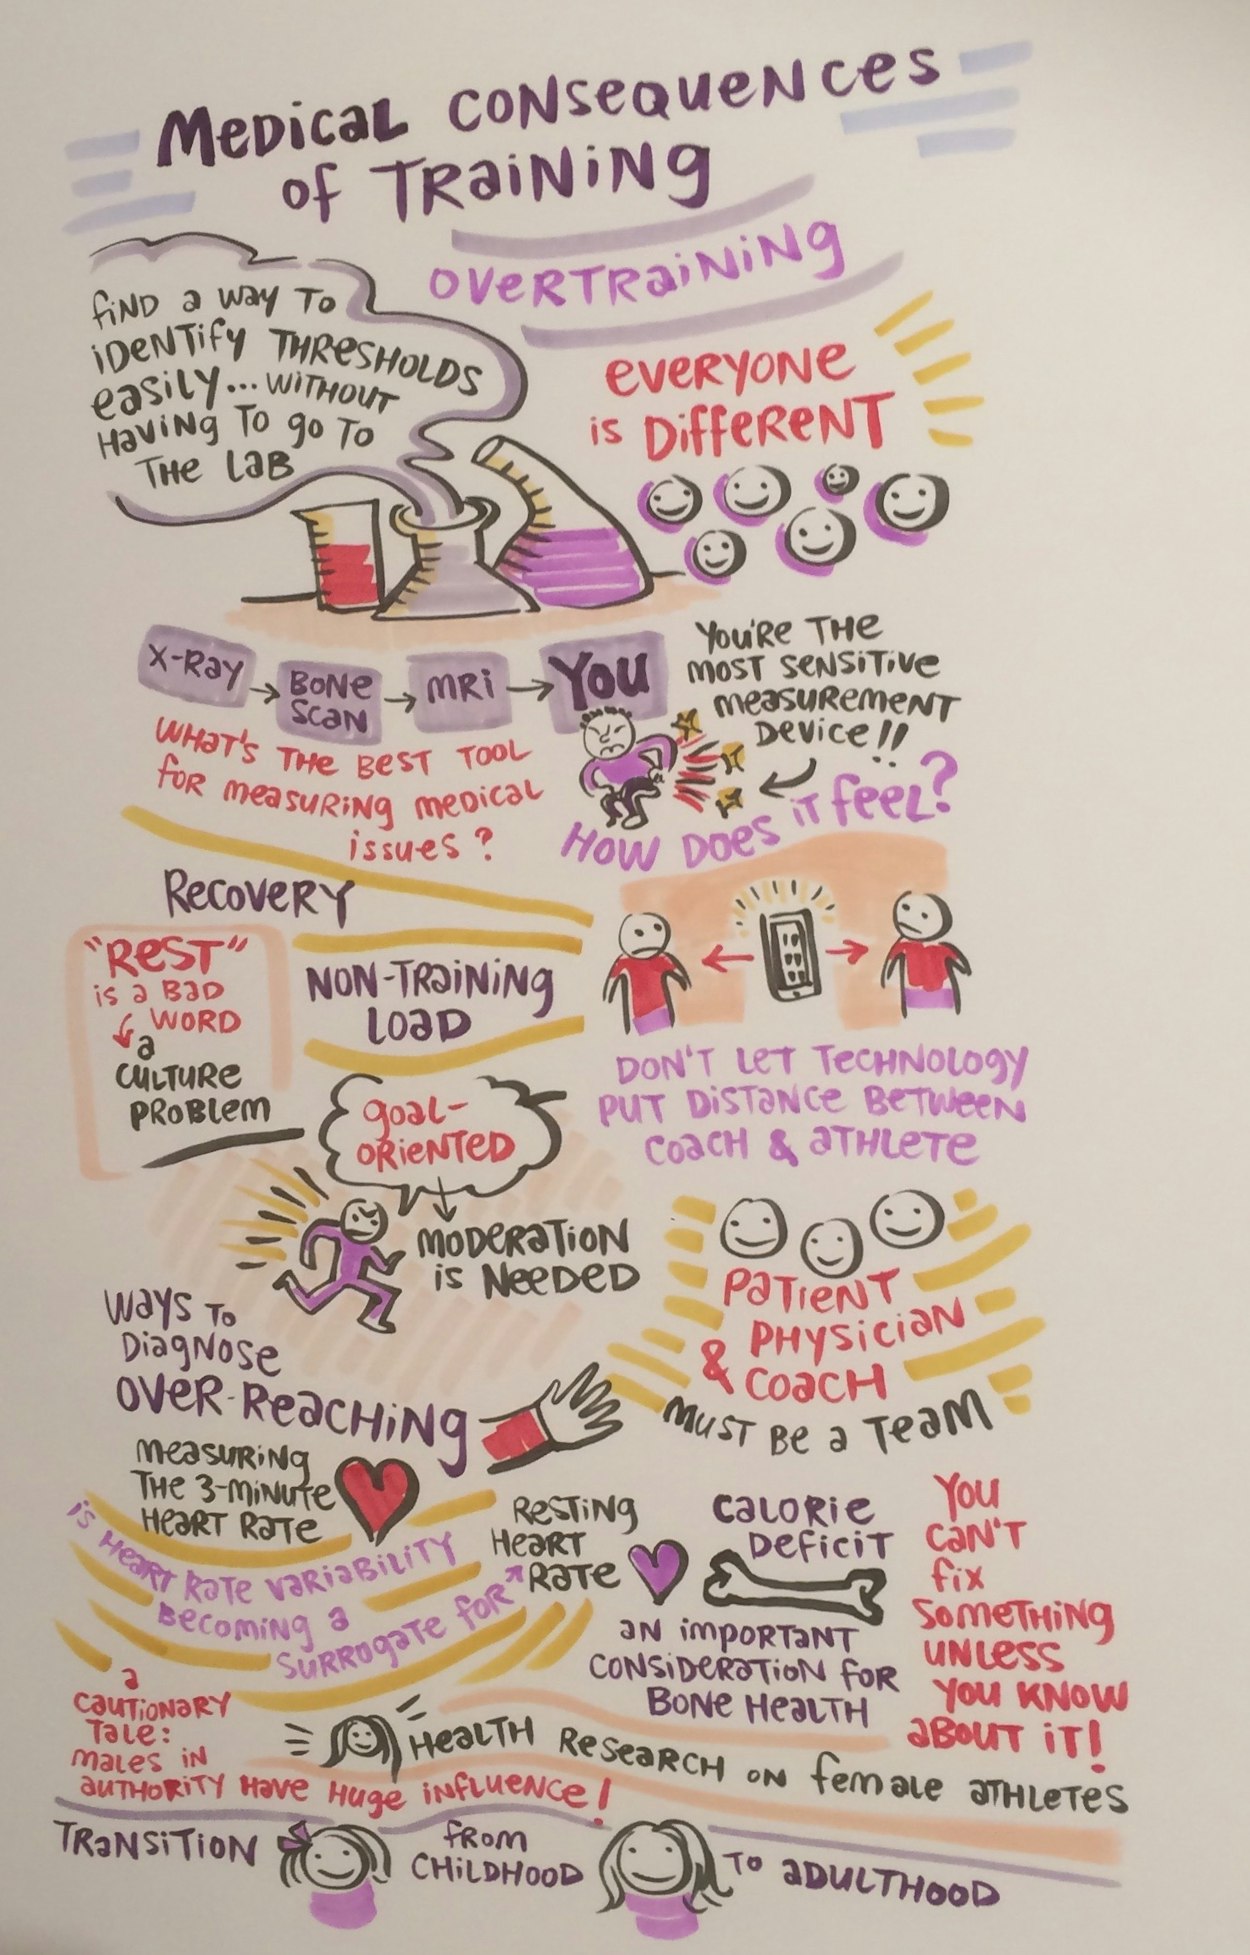 Medical Consequences
of Training
Overtraining
Find a way to
identify thresholds
easily... without
having to go to
the lab
Everyone
is Different
X-Ray
Bone
Scan
MRI
You
You're the
most sensitive
measurement
device!!
What's the best tool
for measuring medical
issues?
How does it feel?
Recovery
"Rest"
is a bad
word
a
culture
problem
Non-Training
Load
Don't let technology
put distance between
coach & athlete
Goal-
oriented
Moderation
is needed
Patient
Physician
& Coach
must be a team
Ways to
Diagnose
Over-Reaching
Measuring
the 3-minute
heart rate
Is heart rate variability
becoming a
surrogate for
Resting
Heart
Rate
Calorie
Deficit
an important
consideration for
bone health
You
can't
fix
something
unless
you know
about it!
a
cautionary
tale:
males in
authority have huge influence!
Health research on female athletes
Transition
from
childhood
to adulthood